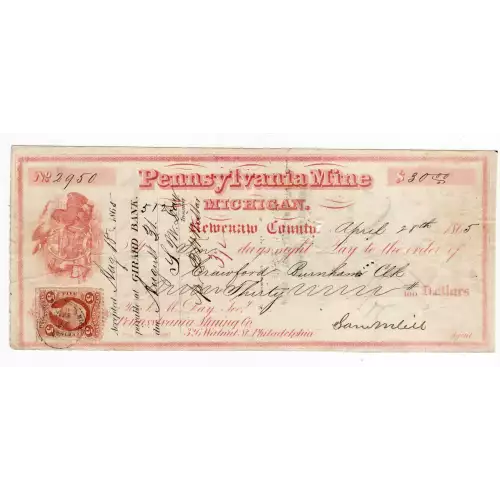 No 2950
Pennsylvania Mine
$30 00
MICHIGAN.
Kewenaw County April 20th 1865
days sight Pay to the order of
Crawford Burnham Clk
Thirty 100 Dollars
S. M. Day, Sec.
Pennsylvania Mining Co.
326 Walnut St. Philadelphia
Sam W Hill
Agent
Accepted Aug 18 1865
payable at GIRARD BANK.
due August 31
S M Day
5
5